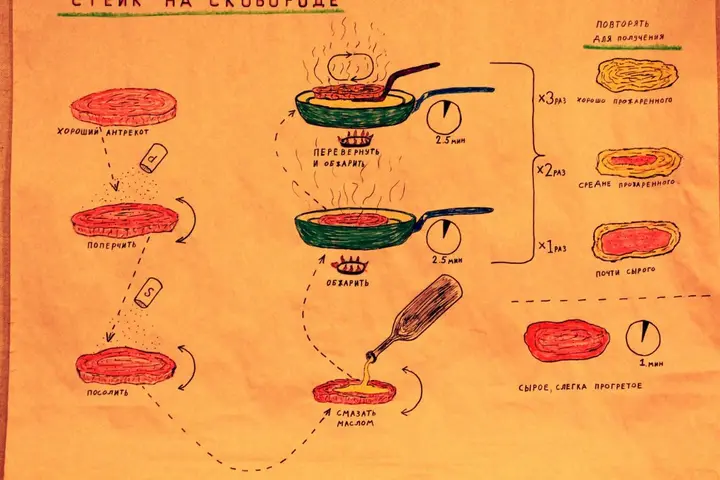 СТЕЙК НА СКОВОРОДЕ
ХОРОШИЙ АНТРЕКОТ
P
ПОПЕРЧИТЬ
S
ПОСОЛИТЬ
СМАЗАТЬ
МАСЛОМ
ОБЖАРИТЬ
2.5 МИН
ПЕРЕВЕРНУТЬ
И ОБЖАРИТЬ
2.5 МИН
ПОВТОРЯТЬ
ДЛЯ ПОЛУЧЕНИЯ
х3РАЗ ХОРОШО ПРОЖАРЕННОГО
х2РАЗ
СРЕДНЕ ПРОЖАРЕННОГО
х1РАЗ
ПОЧТИ СЫРОГО
1.МИН
СЫРОЕ, СЛЕГКА ПРОГРЕТОЕ